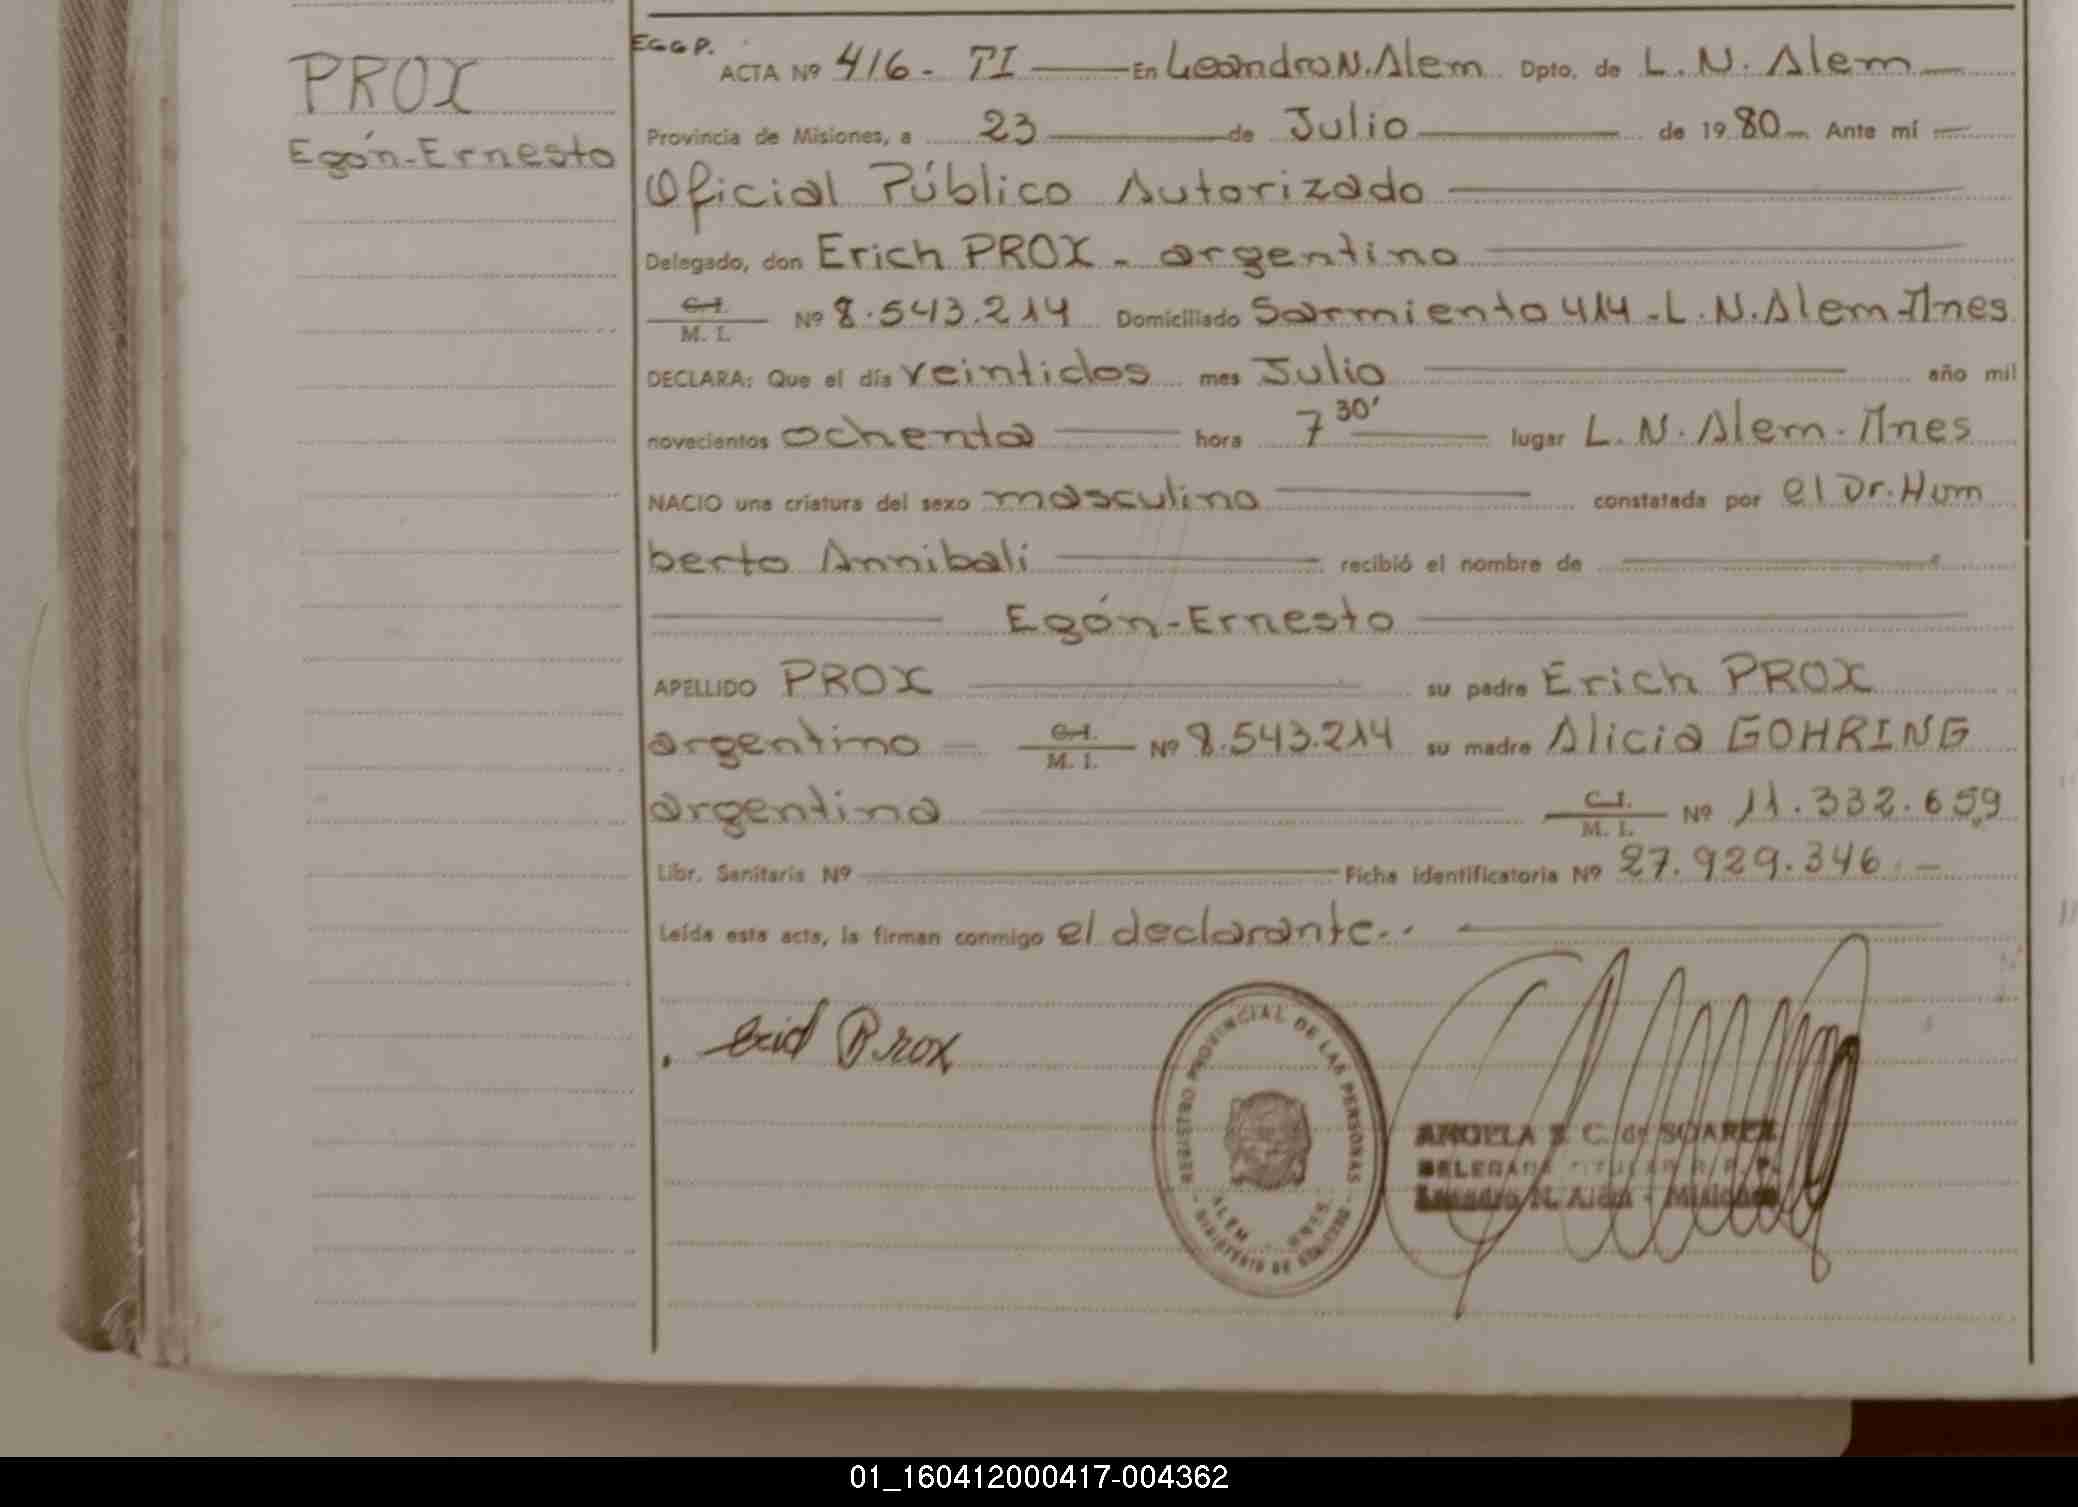 PROX
Egón-Ernesto
EGGP.
ACTA Nº 416 - TI En Leandro N. Alem Dpto. de L. N. Alem
Provincia de Misiones, a 23 de Julio de 1980 Ante mí
Oficial Público Autorizado
Delegado, don Erich PROX - argentino
C.I. M. I. Nº 8.543.214 Domiciliado Sarmiento 414 - L. N. Alem - Mnes
DECLARA: Que el día veintidos mes Julio año mil
novecientos ochenta hora 7 30' lugar L. N. Alem - Mnes
NACIO una criatura del sexo masculino constatada por el Dr. Hum
berto Annibali recibió el nombre de
Egón-Ernesto
APELLIDO PROX su padre Erich PROX
argentino C.I. M. I. Nº 8.543.214 su madre Alicia GOHRING
argentina C.I. M. I. Nº 11.332.659
Libr. Sanitaria Nº Ficha identificatoria Nº 27.929.346 -
Leída esta acta, la firman conmigo el declarante.
Prox
REGISTRO PROVINCIAL DE LAS PERSONAS
ALEM
MINISTERIO DE GOBIERNO
ANGELA S. C. de SOAREZ
DELEGADA TITULAR R. P. P.
Leandro N. Alem - Misiones
01_160412000417-004362